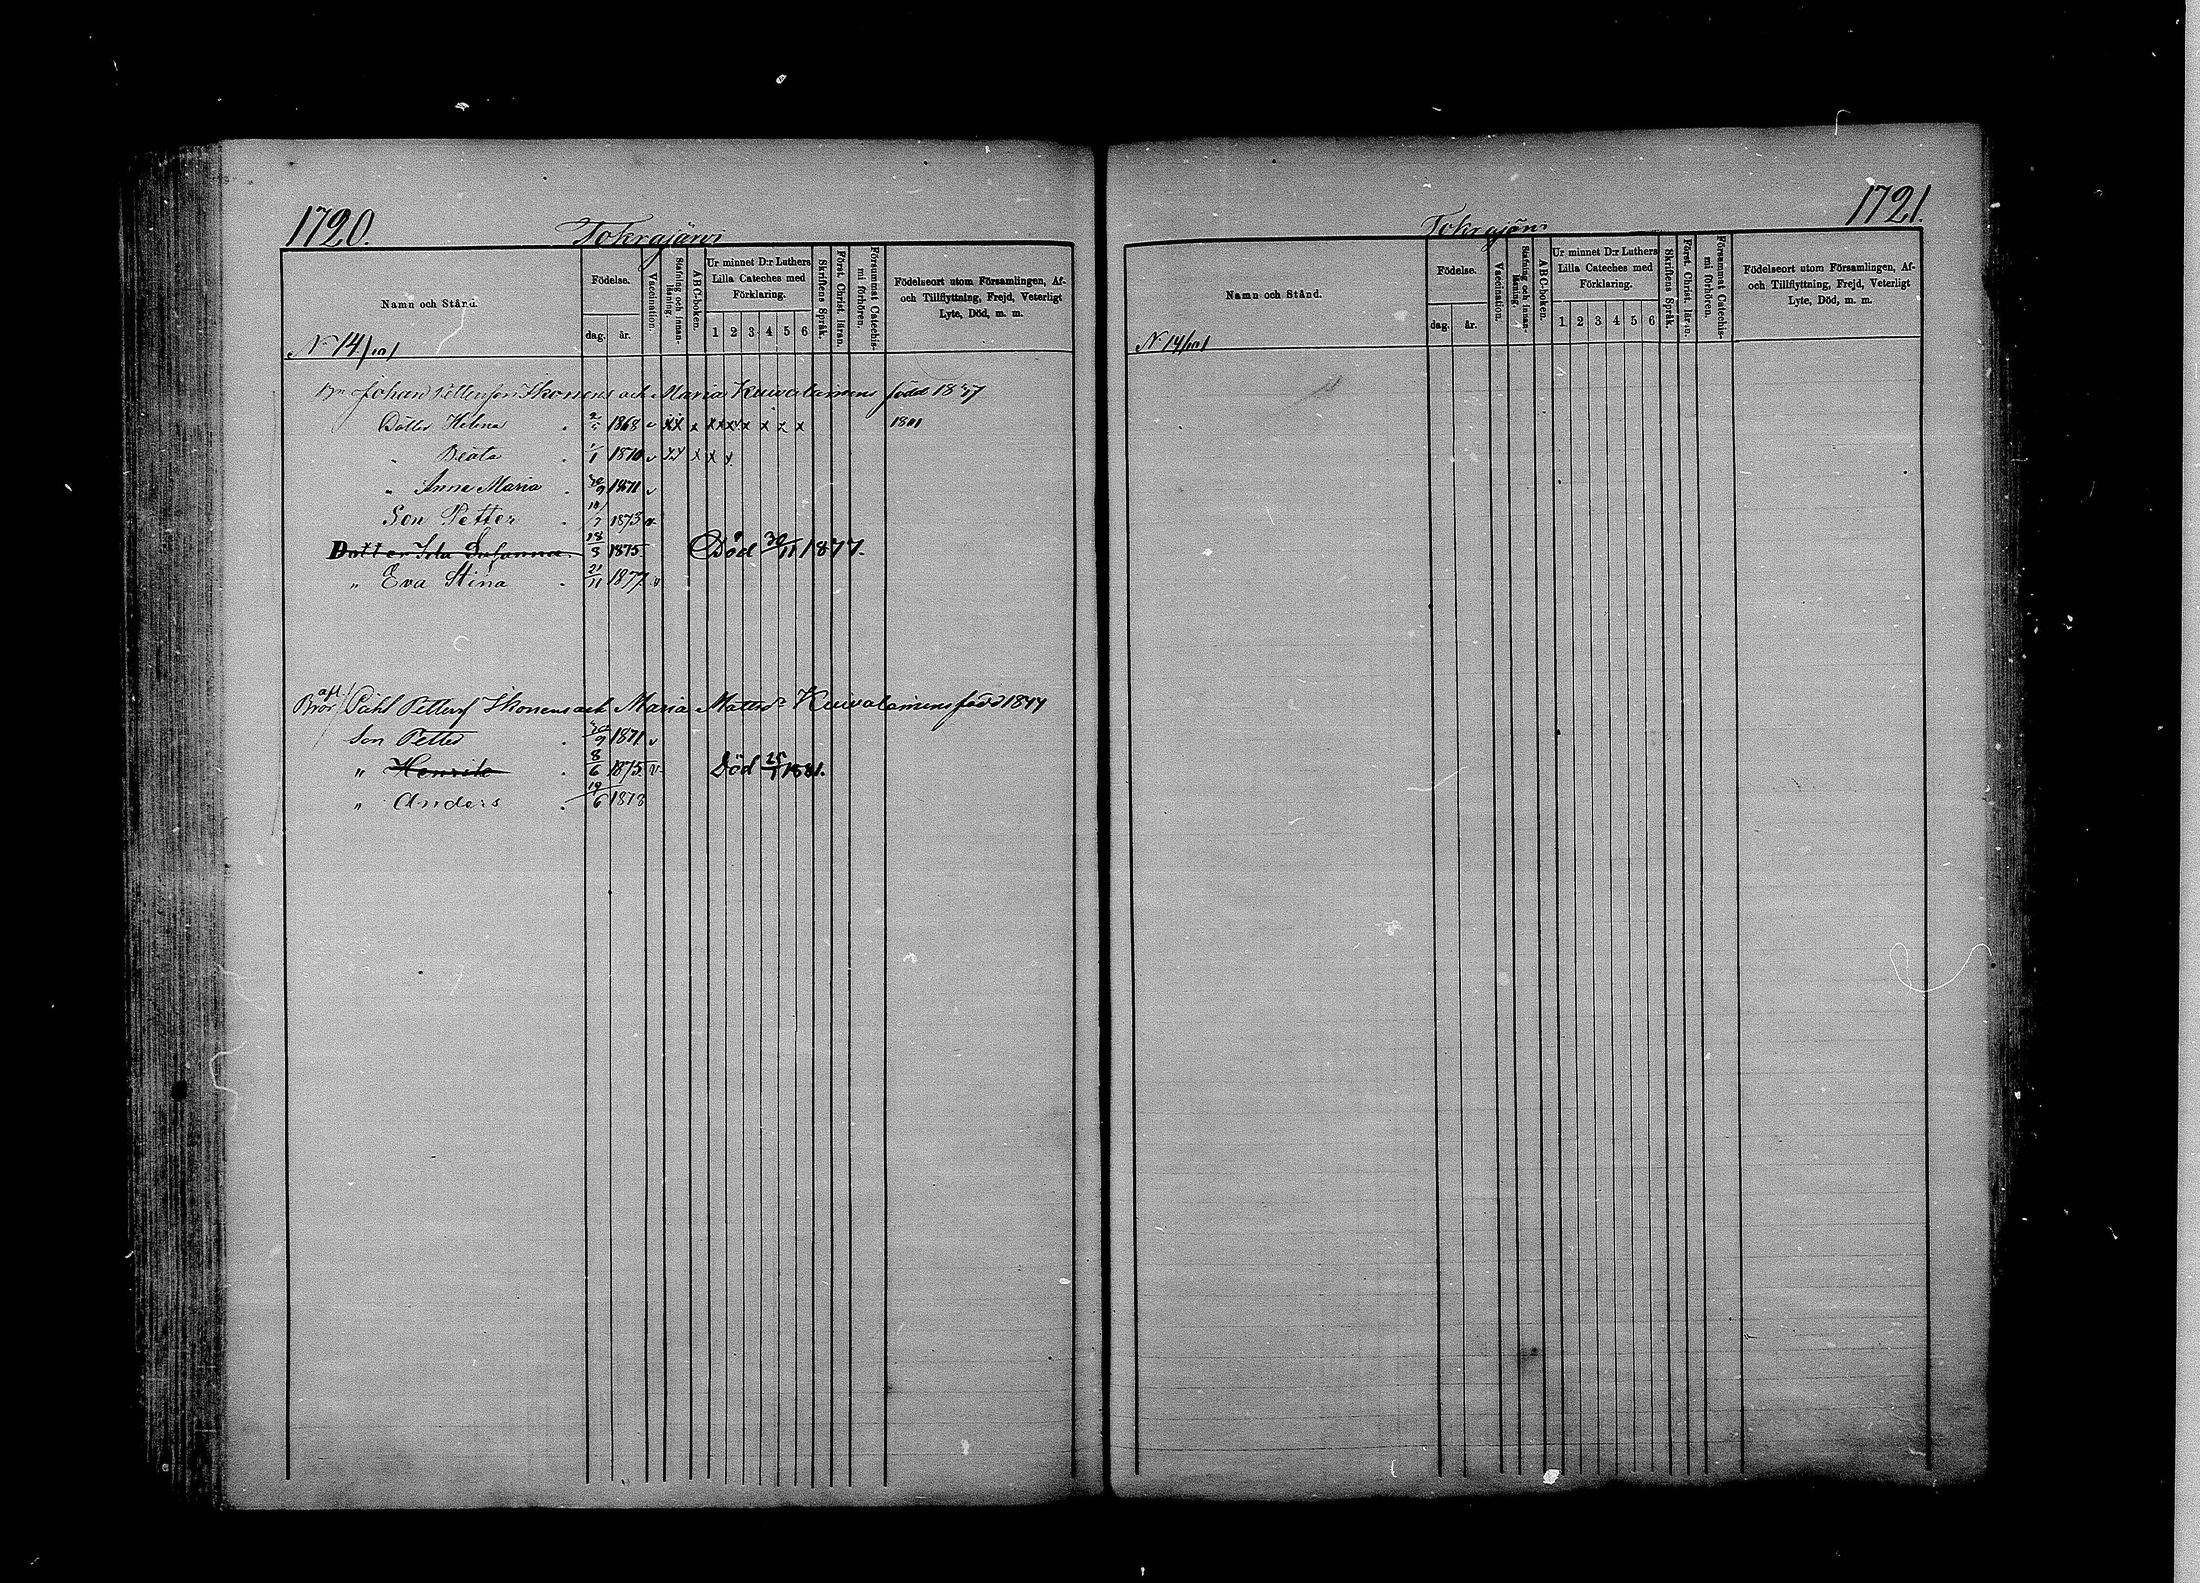 1720.
Tokrajärvi
Namn och Stånd.
Födelse.
dag.
år.
Vaccination.
Stafning och innanläsning
ABC-boken.
Ur minnet D:r Luthers
Lilla Cateches med
Förklaring.
1 2 3 4 5 6
Skriftens Språk.
Först. Christ. läran.
Försummat Catechismi förhören.
Födelseort utom Församlingen, Af-
och Tillflyttning, Frejd, Veterligt
Lyte, Död, m. m.
Johan Pettersson Ikonens och Maria Kuivalainens född 1847
Dotter Helena 1868 v xx x
" Beata 1/1 1870 v
" Anna Maria 9 1871 v
Son Petter 7 1873 v.
Dotter Ida Susanna. 18/3 1875 Död 30/11 1877.
" Eva Stina 21/11 1877 v
Bror Påhl Petterss Ikonens och Maria Mattsd:r Kuivalainens född 1844
Son Petter 9 1871 v
" Henrik 8/6 1875. v. Död 25/1 1881.
" Anders 19/6 1878
1721.
Tokrajärvi
Namn och Stånd.
Födelse.
dag.
år.
Vaccination.
Stafning och innanläsning.
ABC-boken.
Ur minnet D:r Luthers
Lilla Cateches med
Förklaring.
1 2 3 4 5 6
Skriftens Språk.
Först. Christ. läran.
Försummat Catechismi förhören.
Födelseort utom Församlingen, Af-
och Tillflyttning, Frejd, Veterligt
Lyte, Död, m. m.